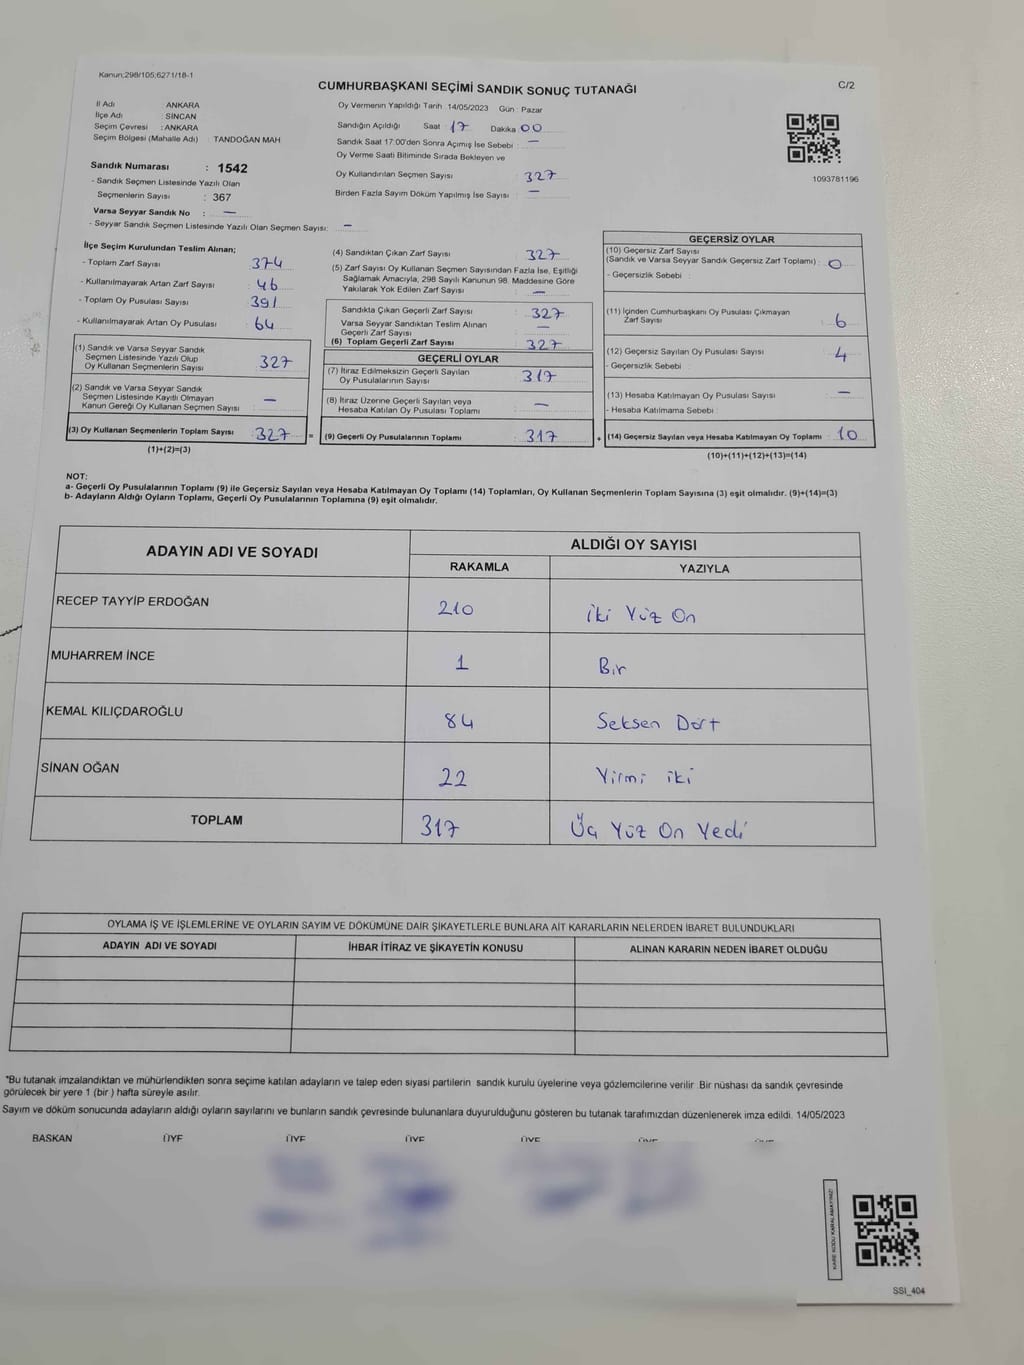 Kanun;298/105,6271/18-1
C/2
CUMHURBAŞKANI SEÇİMİ SANDIK SONUÇ TUTANAĞI
İl Adı : ANKARA
İlçe Adı : SİNCAN
Seçim Çevresi : ANKARA
Seçim Bölgesi (Mahalle Adı) : TANDOĞAN MAH
Sandık Numarası : 1542
- Sandık Seçmen Listesinde Yazılı Olan
Seçmenlerin Sayısı : 367
Varsa Seyyar Sandık No : —
- Seyyar Sandık Seçmen Listesinde Yazılı Olan Seçmen Sayısı: —
Oy Vermenin Yapıldığı Tarih 14/05/2023 Gün : Pazar
Sandığın Açıldığı Saat 17 Dakika 00
Sandık Saat 17:00'den Sonra Açımış İse Sebebi : —
Oy Verme Saati Bitiminde Sırada Bekleyen ve
Oy Kullandırılan Seçmen Sayısı : 327
Birden Fazla Sayım Döküm Yapılmış İse Sayısı : —
1093781196
İlçe Seçim Kurulundan Teslim Alınan;
- Toplam Zarf Sayısı : 374
- Kullanılmayarak Artan Zarf Sayısı : 46
- Toplam Oy Pusulası Sayısı : 391
- Kullanılmayarak Artan Oy Pusulası : 64
(1) Sandık ve Varsa Seyyar Sandık
Seçmen Listesinde Yazılı Olup
Oy Kullanan Seçmenlerin Sayısı : 327
(2) Sandık ve Varsa Seyyar Sandık
Seçmen Listesinde Kayıtlı Olmayan
Kanun Gereği Oy Kullanan Seçmen Sayısı : —
(3) Oy Kullanan Seçmenlerin Toplam Sayısı : 327 =
(1)+(2)=(3)
(4) Sandıktan Çıkan Zarf Sayısı : 327
(5) Zarf Sayısı Oy Kullanan Seçmen Sayısından Fazla İse, Eşitliği
Sağlamak Amacıyla, 298 Sayılı Kanunun 98. Maddesine Göre
Yakılarak Yok Edilen Zarf Sayısı : —
Sandıkta Çıkan Geçerli Zarf Sayısı : 327
Varsa Seyyar Sandıktan Teslim Alınan
Geçerli Zarf Sayısı : —
(6) Toplam Geçerli Zarf Sayısı : 327
GEÇERLİ OYLAR
(7) İtiraz Edilmeksizin Geçerli Sayılan
Oy Pusulalarının Sayısı : 317
(8) İtiraz Üzerine Geçerli Sayılan veya
Hesaba Katılan Oy Pusulası Toplamı : —
(9) Geçerli Oy Pusulalarının Toplamı : 317 +
GEÇERSİZ OYLAR
(10) Geçersiz Zarf Sayısı
(Sandık ve Varsa Seyyar Sandık Geçersiz Zarf Toplamı) : 0
- Geçersizlik Sebebi :
(11) İçinden Cumhurbaşkanı Oy Pusulası Çıkmayan
Zarf Sayısı : 6
(12) Geçersiz Sayılan Oy Pusulası Sayısı : 4
- Geçersizlik Sebebi :
(13) Hesaba Katılmayan Oy Pusulası Sayısı : —
- Hesaba Katılmama Sebebi :
(14) Geçersiz Sayılan veya Hesaba Katılmayan Oy Toplamı : 10
(10)+(11)+(12)+(13)=(14)
NOT:
a- Geçerli Oy Pusulalarının Toplamı (9) ile Geçersiz Sayılan veya Hesaba Katılmayan Oy Toplamı (14) Toplamları, Oy Kullanan Seçmenlerin Toplam Sayısına (3) eşit olmalıdır. (9)+(14)=(3)
b- Adayların Aldığı Oyların Toplamı, Geçerli Oy Pusulalarının Toplamına (9) eşit olmalıdır.
ADAYIN ADI VE SOYADI
ALDIĞI OY SAYISI
RAKAMLA YAZIYLA
RECEP TAYYİP ERDOĞAN 210 İki Yüz On
MUHARREM İNCE 1 Bir
KEMAL KILIÇDAROĞLU 84 Seksen Dört
SİNAN OĞAN 22 Yirmi iki
TOPLAM 317 Üç Yüz On Yedi
OYLAMA İŞ VE İŞLEMLERİNE VE OYLARIN SAYIM VE DÖKÜMÜNE DAİR ŞİKAYETLERLE BUNLARA AİT KARARLARIN NELERDEN İBARET BULUNDUKLARI
ADAYIN ADI VE SOYADI İHBAR İTİRAZ VE ŞİKAYETİN KONUSU ALINAN KARARIN NEDEN İBARET OLDUĞU
*Bu tutanak imzalandıktan ve mühürlendikten sonra seçime katılan adayların ve talep eden siyasi partilerin sandık kurulu üyelerine veya gözlemcilerine verilir. Bir nüshası da sandık çevresinde
görülecek bir yere 1 (bir ) hafta süreyle asılır.
Sayım ve döküm sonucunda adayların aldığı oyların sayılarını ve bunların sandık çevresinde bulunanlara duyurulduğunu gösteren bu tutanak tarafımızdan düzenlenerek imza edildi. 14/05/2023
BAŞKAN ÜYE ÜYE ÜYE ÜYE
KARE KODU KARALAMAYINIZ!
SSI_404